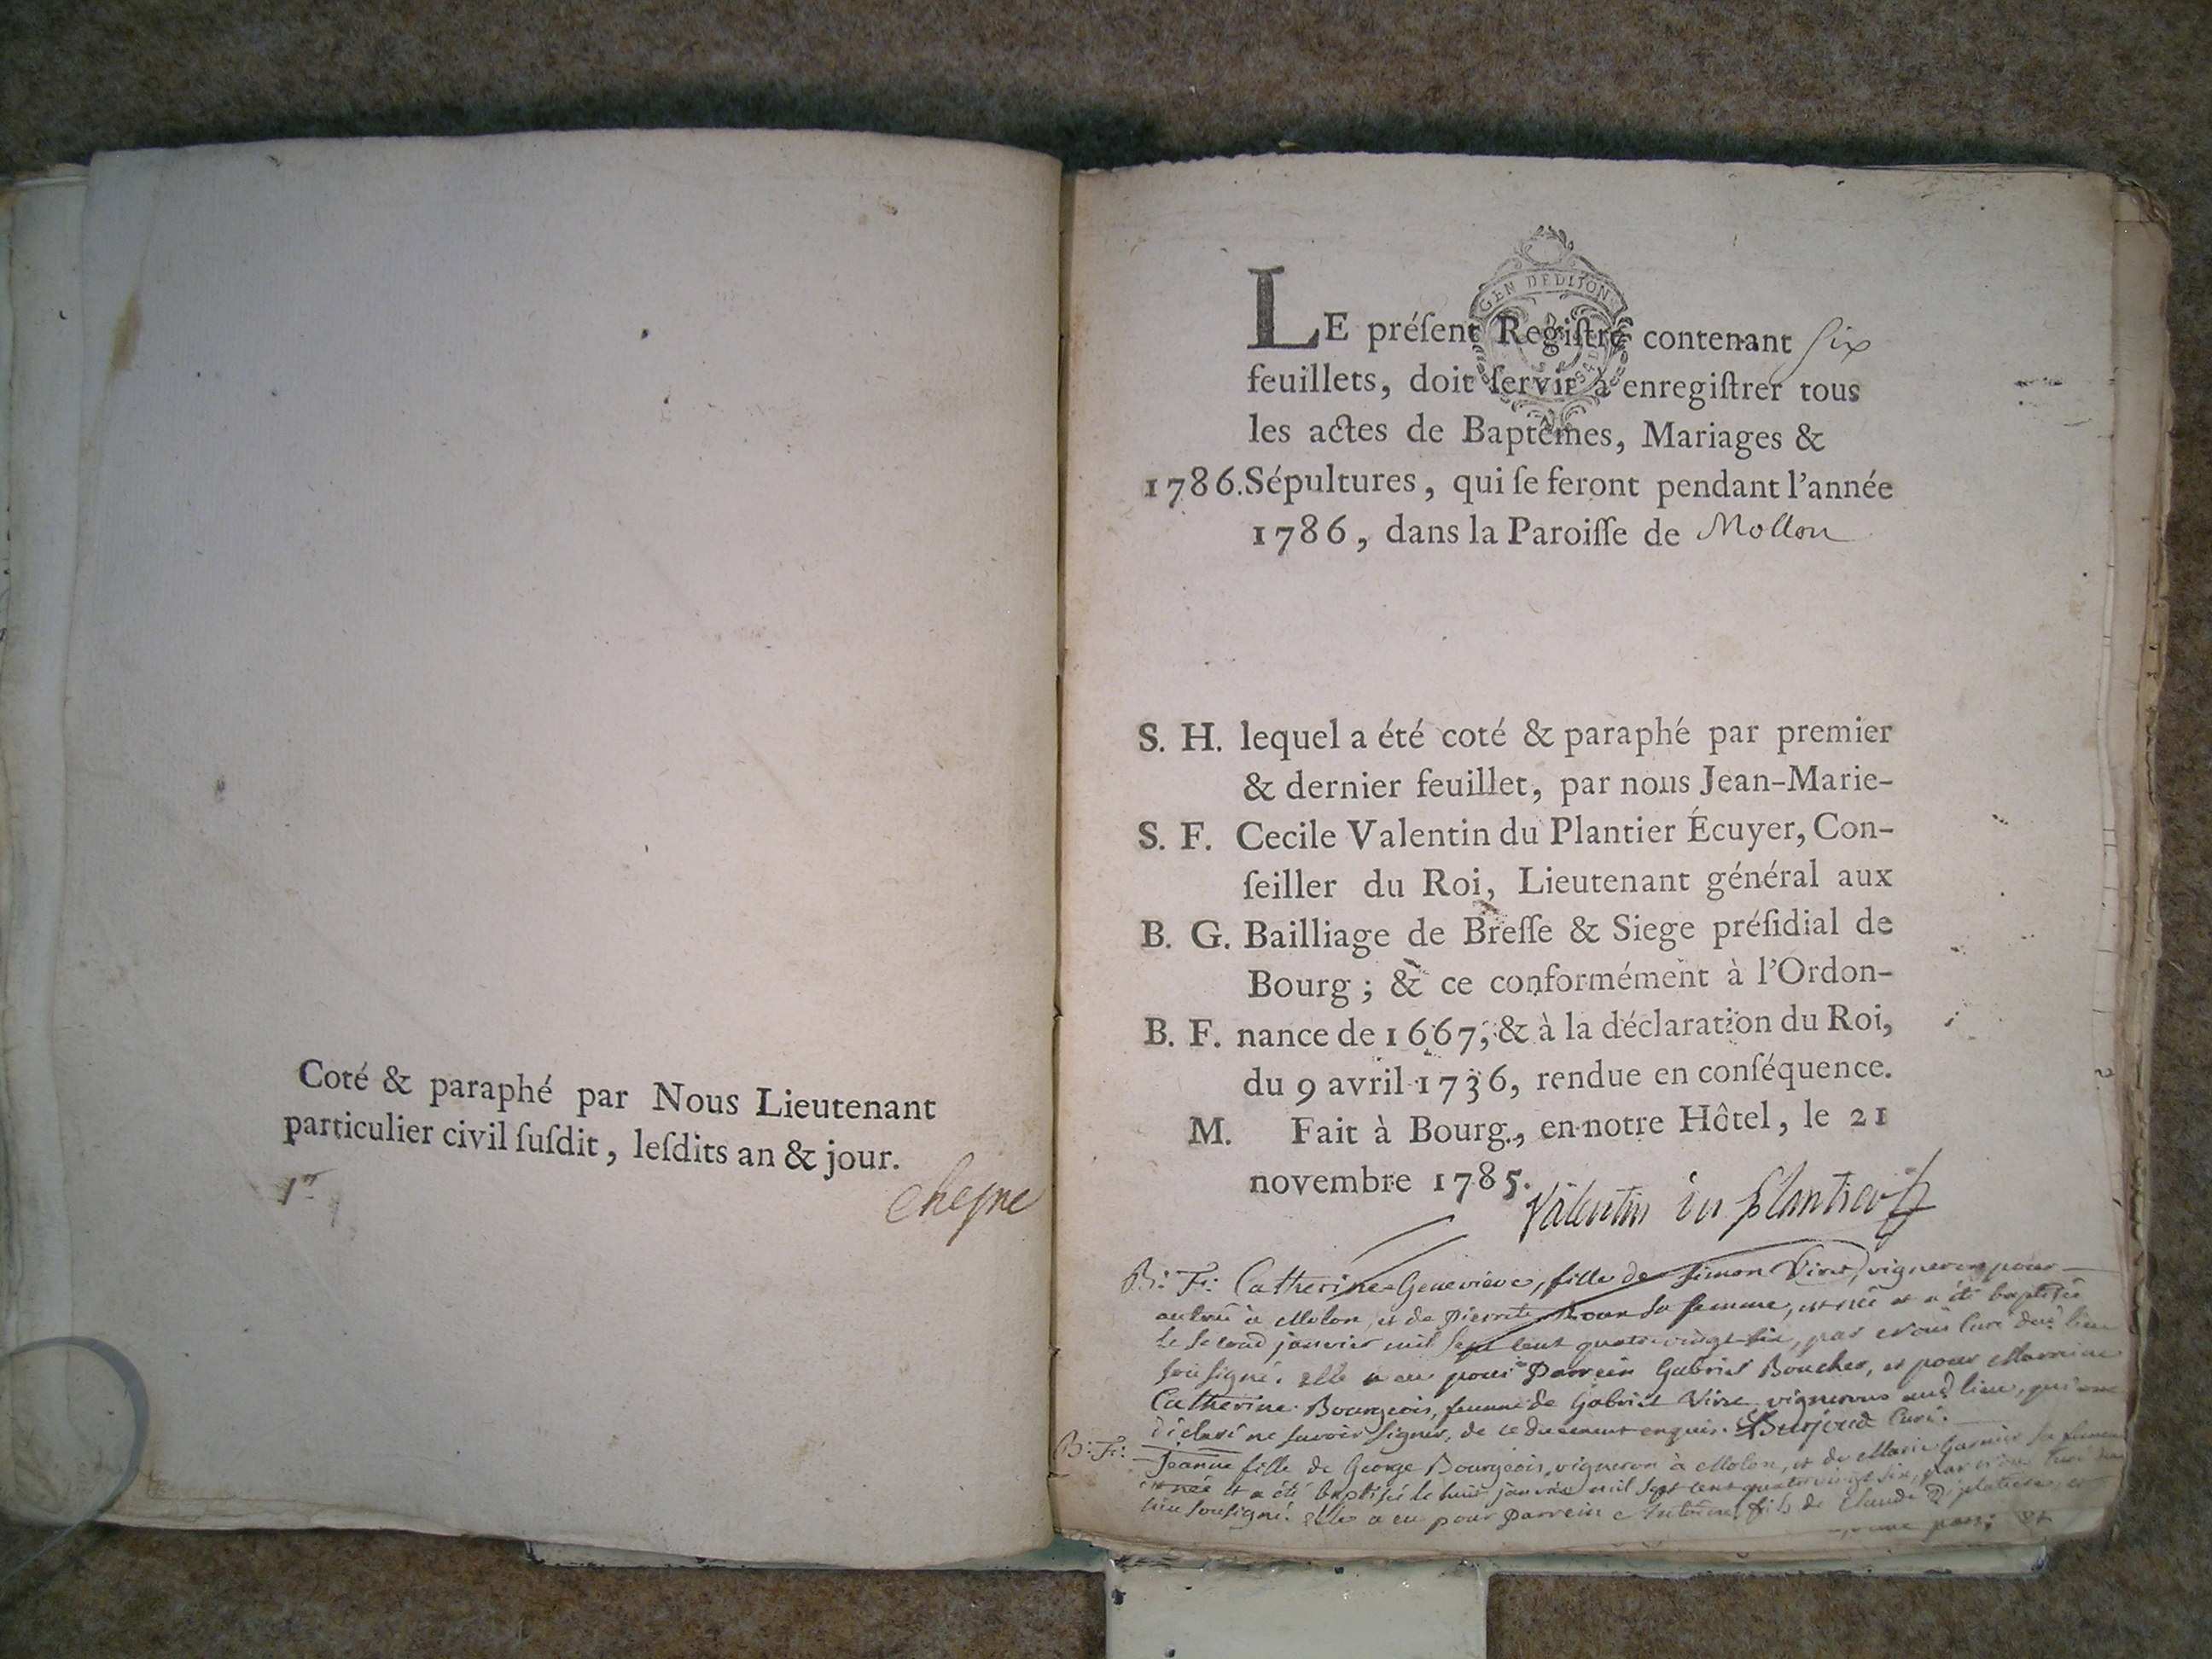 Coté & paraphé par Nous Lieutenant
particulier civil ſuſdit, leſdits an & jour.
1er
cheyne
GEN DE DIJON
LE préſent Regiſtre contenant Six
feuillets, doit ſervir à enregiſtrer tous
les actes de Baptêmes, Mariages &
1786. Sépultures, qui ſe feront pendant l'année
1786, dans la Paroiſſe de Mollon
S. H. lequel a été coté & paraphé par premier
& dernier feuillet, par nous Jean-Marie-
S. F. Cecile Valentin du Plantier Écuyer, Con-
ſeiller du Roi, Lieutenant général aux
B. G. Bailliage de Breſſe & Siege préſidial de
Bourg; & ce conformément à l'Ordon-
B. F. nance de 1667, & à la déclaration du Roi,
du 9 avril 1736, rendue en conſéquence.
M. Fait à Bourg, en notre Hôtel, le 21
novembre 1785.
Valentin du plantier
B: F: Catherine-Geneviève, fille de Simon Viret, vigneron pour
autrui à Molon, et de Pierrette sa femme, est née et a été baptisée
le second janvier mil sept cent quatre vingt six, par Nous Curé dud. lieu
soussigné. elle a eu pour Parrein Gabriel Boucher, et pour Marreine
Catherine Bourgeois, femme de Gabriel vignerons aud. lieu, qui ont
déclaré ne savoir signer, de ce duement enquis. Burjoud Curé.
B: F: Jeanne fille de George Bourgeois, vigneron à Molon, et de Marie Garnier sa femme
est née et a été baptisée le huit janvier mil sept cent quatre vingt six, par nous Curé du
lieu soussigné. elle a eu pour Parrein Antoine, fils de Claude